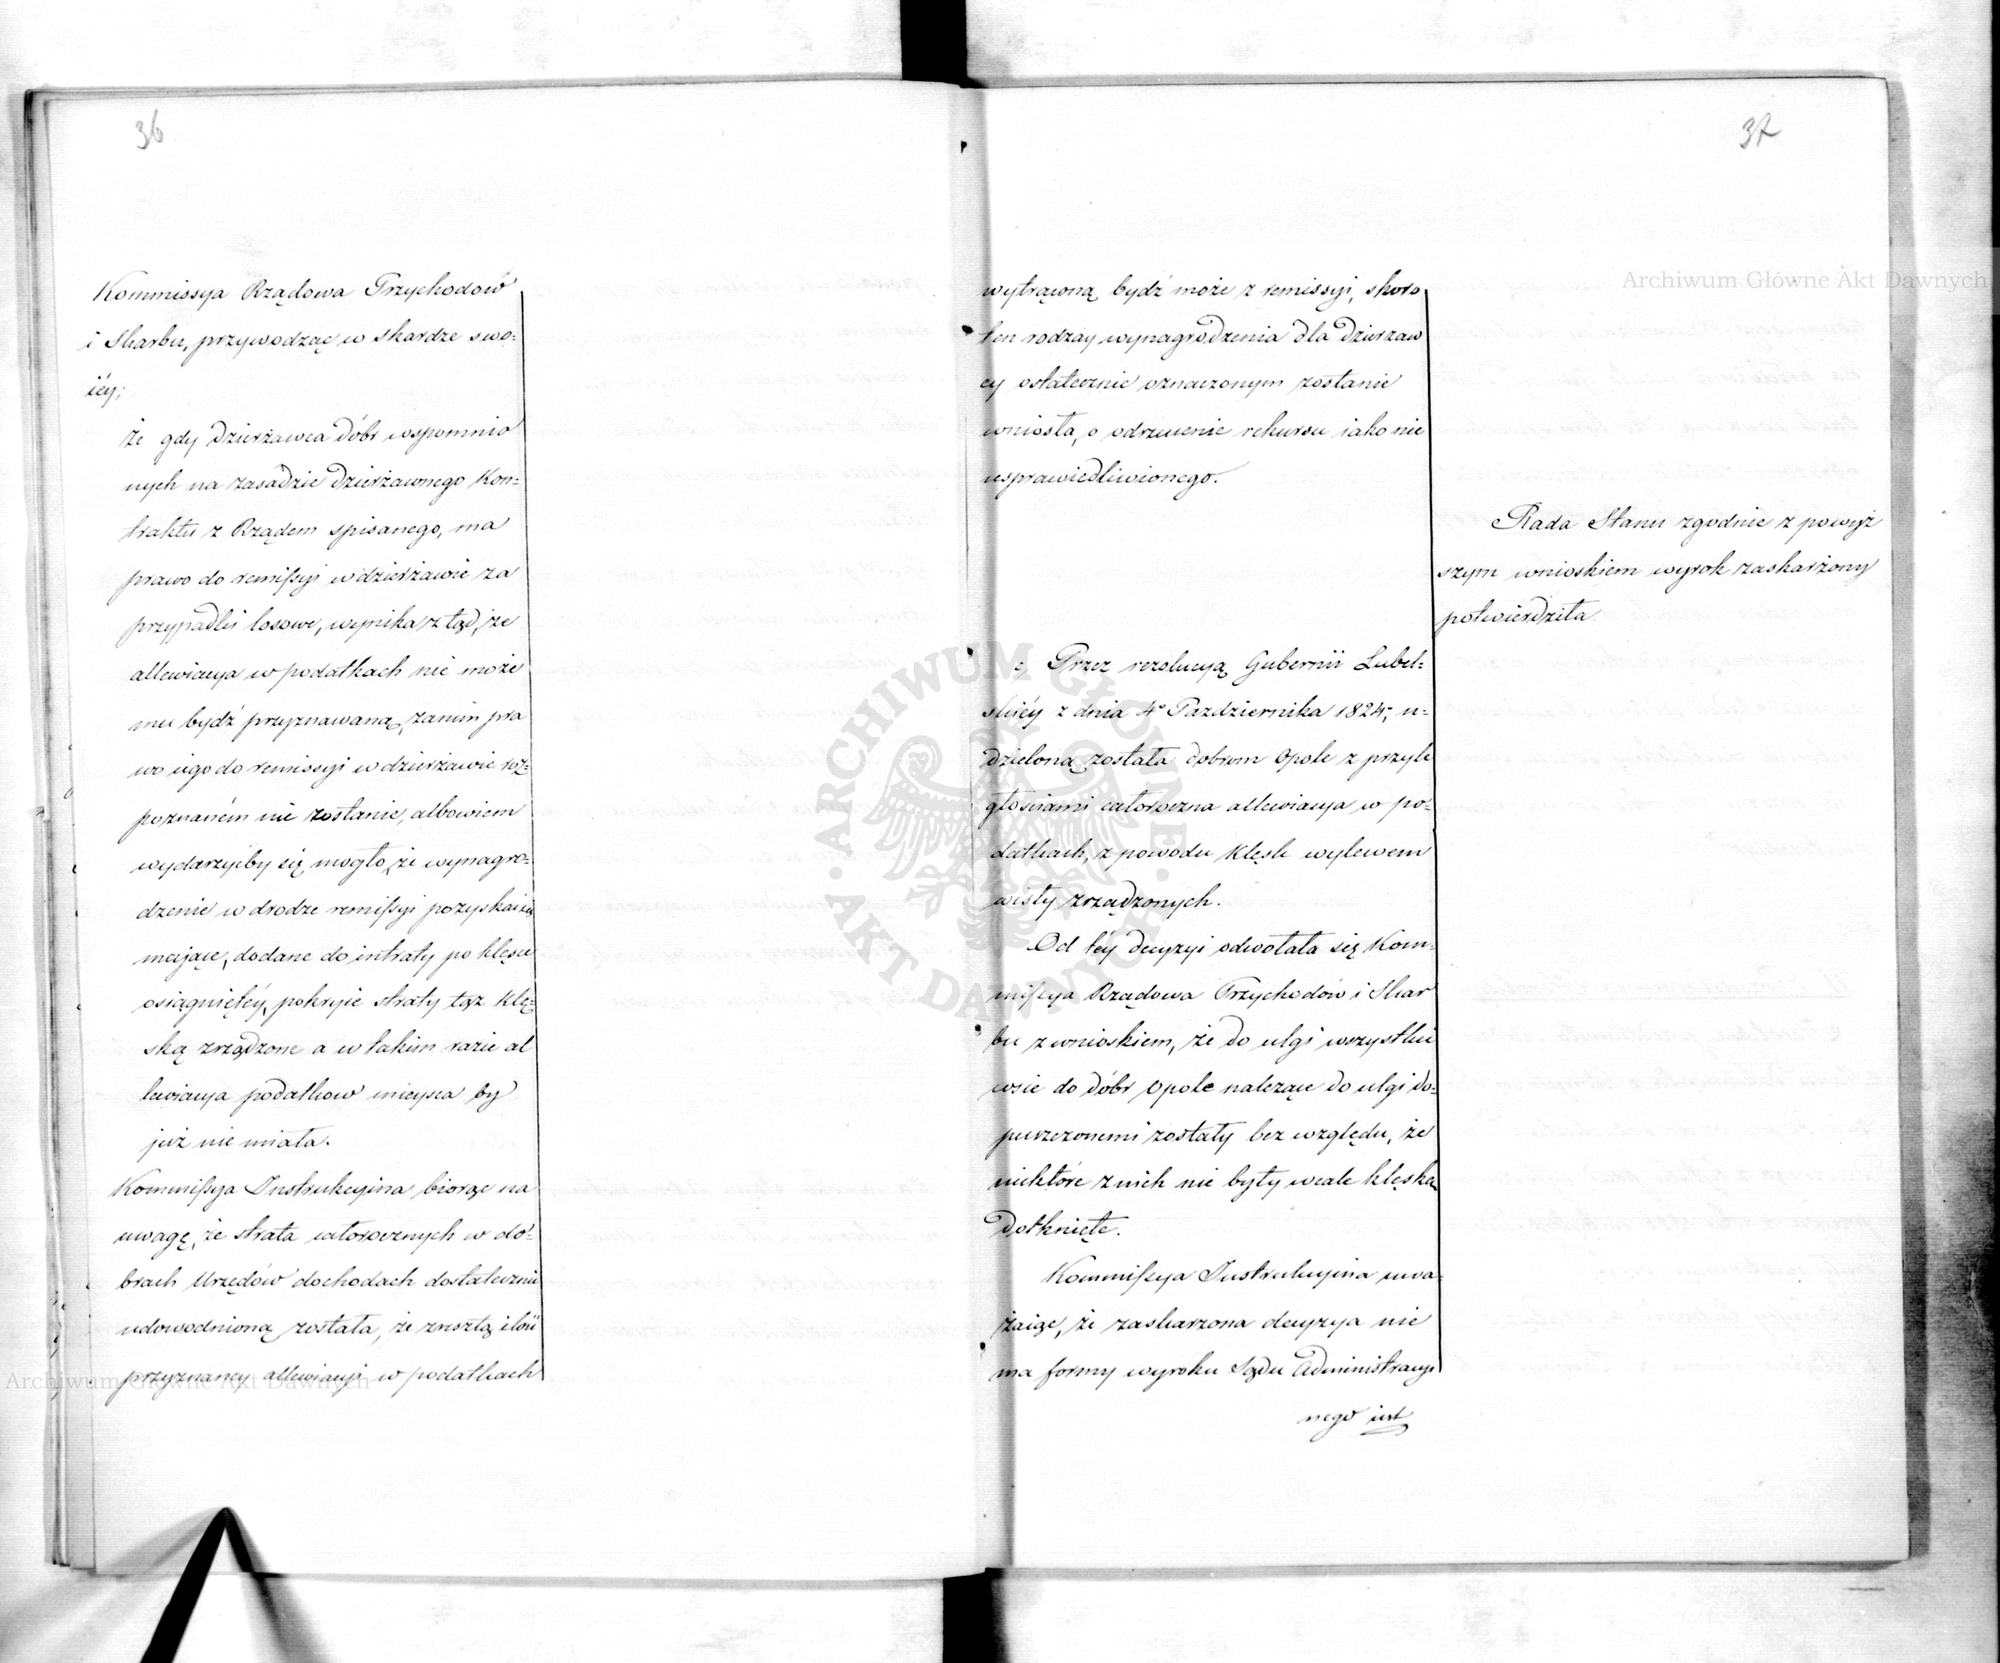 36
Kommissya Rządowa Przychodow
i Skarbu, przywodząc w skardze swo:
iéy;
że gdy dzierżawca dóbr wspomnio
nych na zasadzie dzierżawnego Kon:
traktu z Rządem spisanego, ma
prawo do remissyi w dzierżawie za
przypadki losowe, wynika z tąd, że
allewiacya w podatkach nie może
mu bydź przyznawaną, zanim pra
wo iego do remissyi w dzierżawie roz:
poznaném nie zostanie, albowiem
wydarzyćby się mogło, że wynagro:
dzenie w drodze remissyi pozyskać się
mające, dodane do intraty po klęsce
osiągniętéy, pokryie straty tąż klę:
ską zrządzone a w takim razie al
lewiacya podatkow mieysca by
już nie miała.
Kommissya Instrukcyina biorąc na
uwagę, że strata całorocznych w do:
brach Urzędów dochodach dostatecznie
udowodnioną została, że zresztą ilość
przyznaney allewiacyi w podatkach
37
wytrąconą bydź może z remissyi, skoro
ten rodzay wynagrodzenia dla dzierzaw
cy ostatecznie oznaczonym zostanie
wniosła, o odrzucenie rekursu iako nie
usprawiedliwionego.
Rada Stanu zgodnie z powyż
szym wnioskiem wyrok zaskarżony
potwierdziła
c, Przez rezolucyą Gubernii Lubel:
skiéy z dnia 4º Pazdziernika 1824; u:
dzieloną została dobrom Opole z przyle
głosciami całoroczna allewiacya w po:
datkach, z powodu klęsk wylewem
wisły zrządzonych.
Od téy decyzyi odwołała się Kom:
missya Rządowa Przychodów i Skar
bu z wnioskiem, że do ulgi wszystkie
wsie do dóbr Opole nalezące do ulgi do:
puszczonemi zostały bez względu, że
niektóre z nich nie były wcale klęską
dotknięte.
Kommissya Instrukcyina uwa:
żaiąc, że zaskarzona decyzya nie
ma formy wyroku Sądu Administracyi
nego iest
ARCHIWUM GŁÓWNE AKT DAWNYCH
Archiwum Główne Akt Dawnych
Archiwum Główne Akt Dawnych